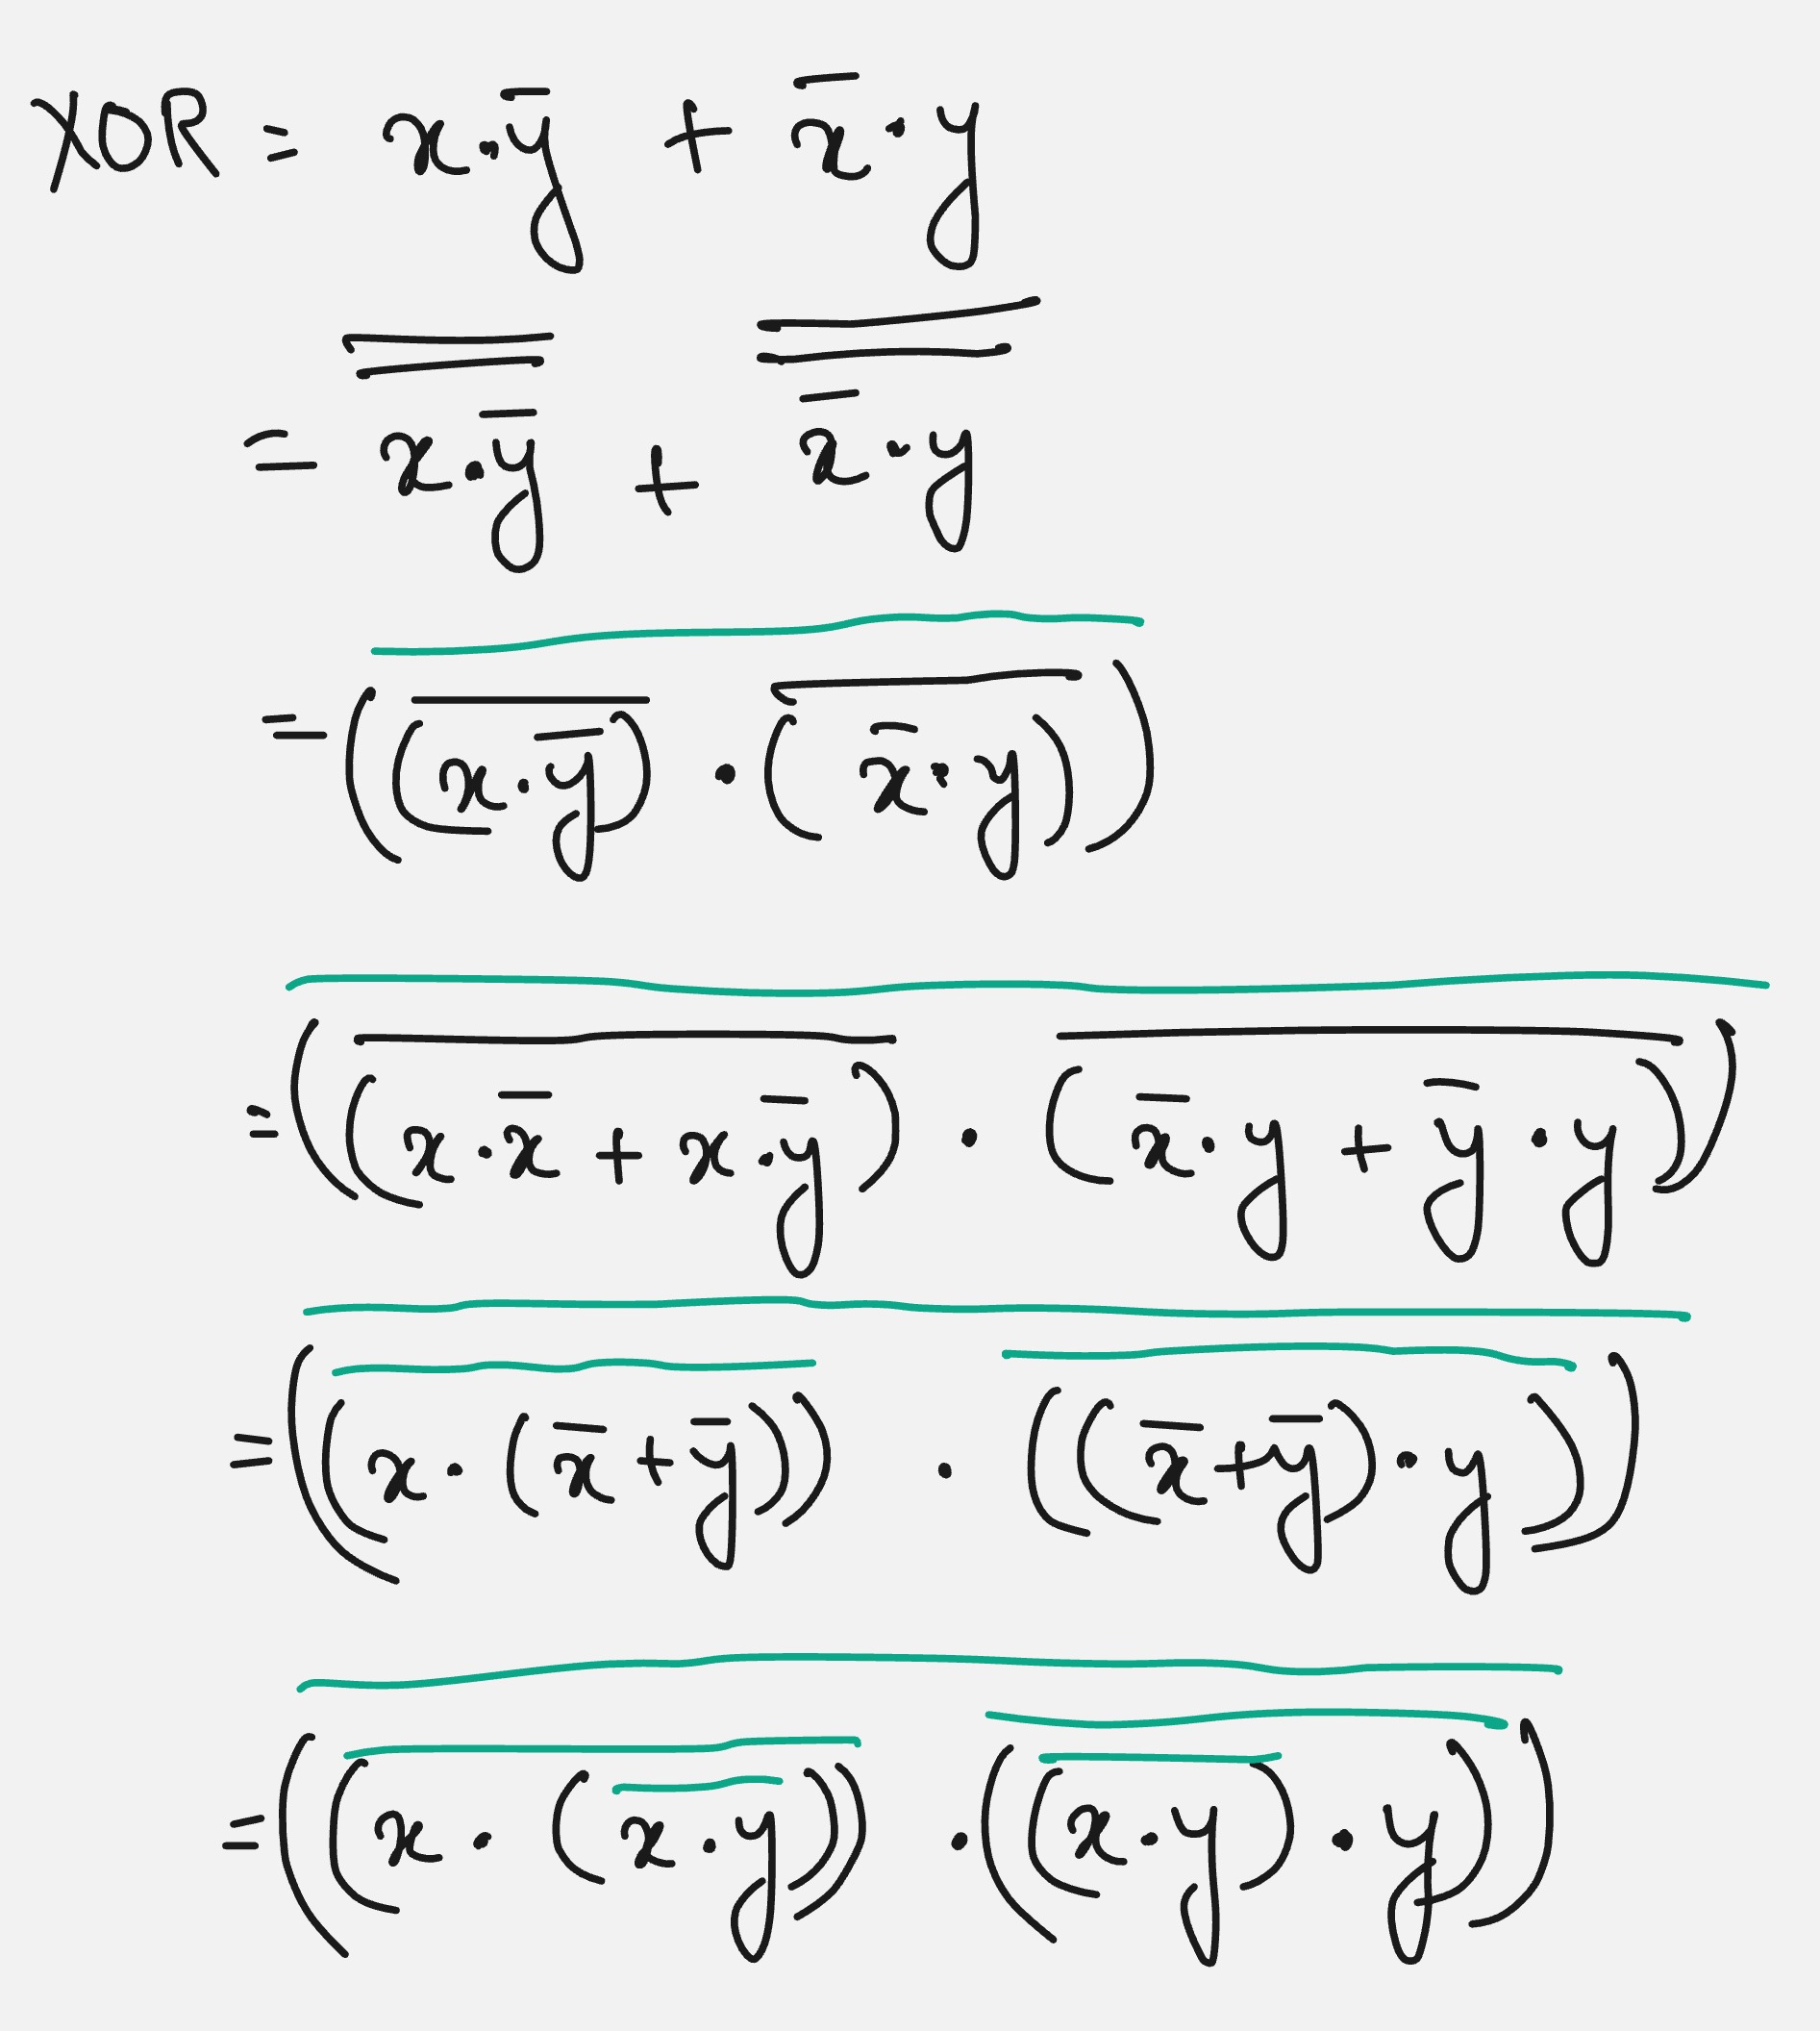 XOR = x·ȳ + x̄·y
= \overline{\overline{x·ȳ}} + \overline{\overline{x̄·y}}
= \overline{(\overline{(x·ȳ)} · \overline{(x̄·y)})}
= \overline{(\overline{(x·x̄ + x·ȳ)} · \overline{(x̄·y + ȳ·y)})}
= \overline{(\overline{(x·(x̄+ȳ))} · \overline{((x̄+ȳ)·y)})}
= \overline{(\overline{(x·(\overline{x·y}))} · \overline{(\overline{(x·y)}·y)})}